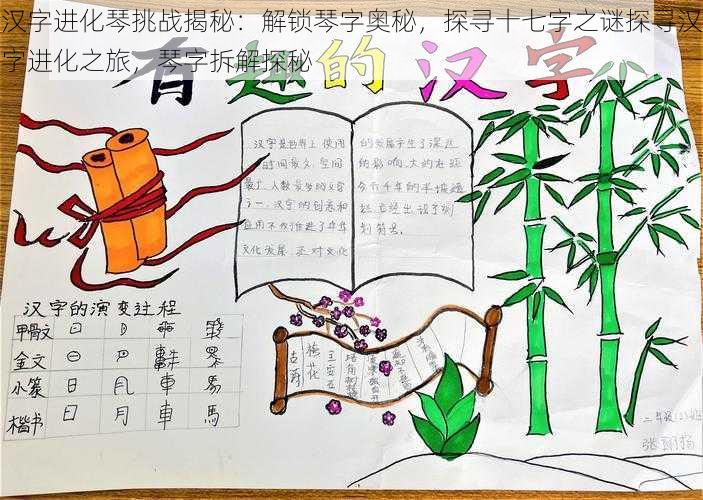 汉字进化琴挑战揭秘：解锁琴字奥秘，探寻十七字之谜探寻汉
字进化之旅，琴字拆解探秘
有趣的汉字
汉字是世界上使用
时间最久、空间
最广、人数最多的文字
之一，汉字的创造和
应用不仅推进了中华
文化发展，还对文化
的发展产生了深远
的影响，大约在距
今六千年的半坡遗
址，已经出现了刻
划符号。
汉字的演变过程
甲骨文 日
金文
小篆 日 車 馬
楷书 日 月 車 馬
古诗
梅花
王安石
墙角数枝梅
凌寒独自开
二年级(2)班